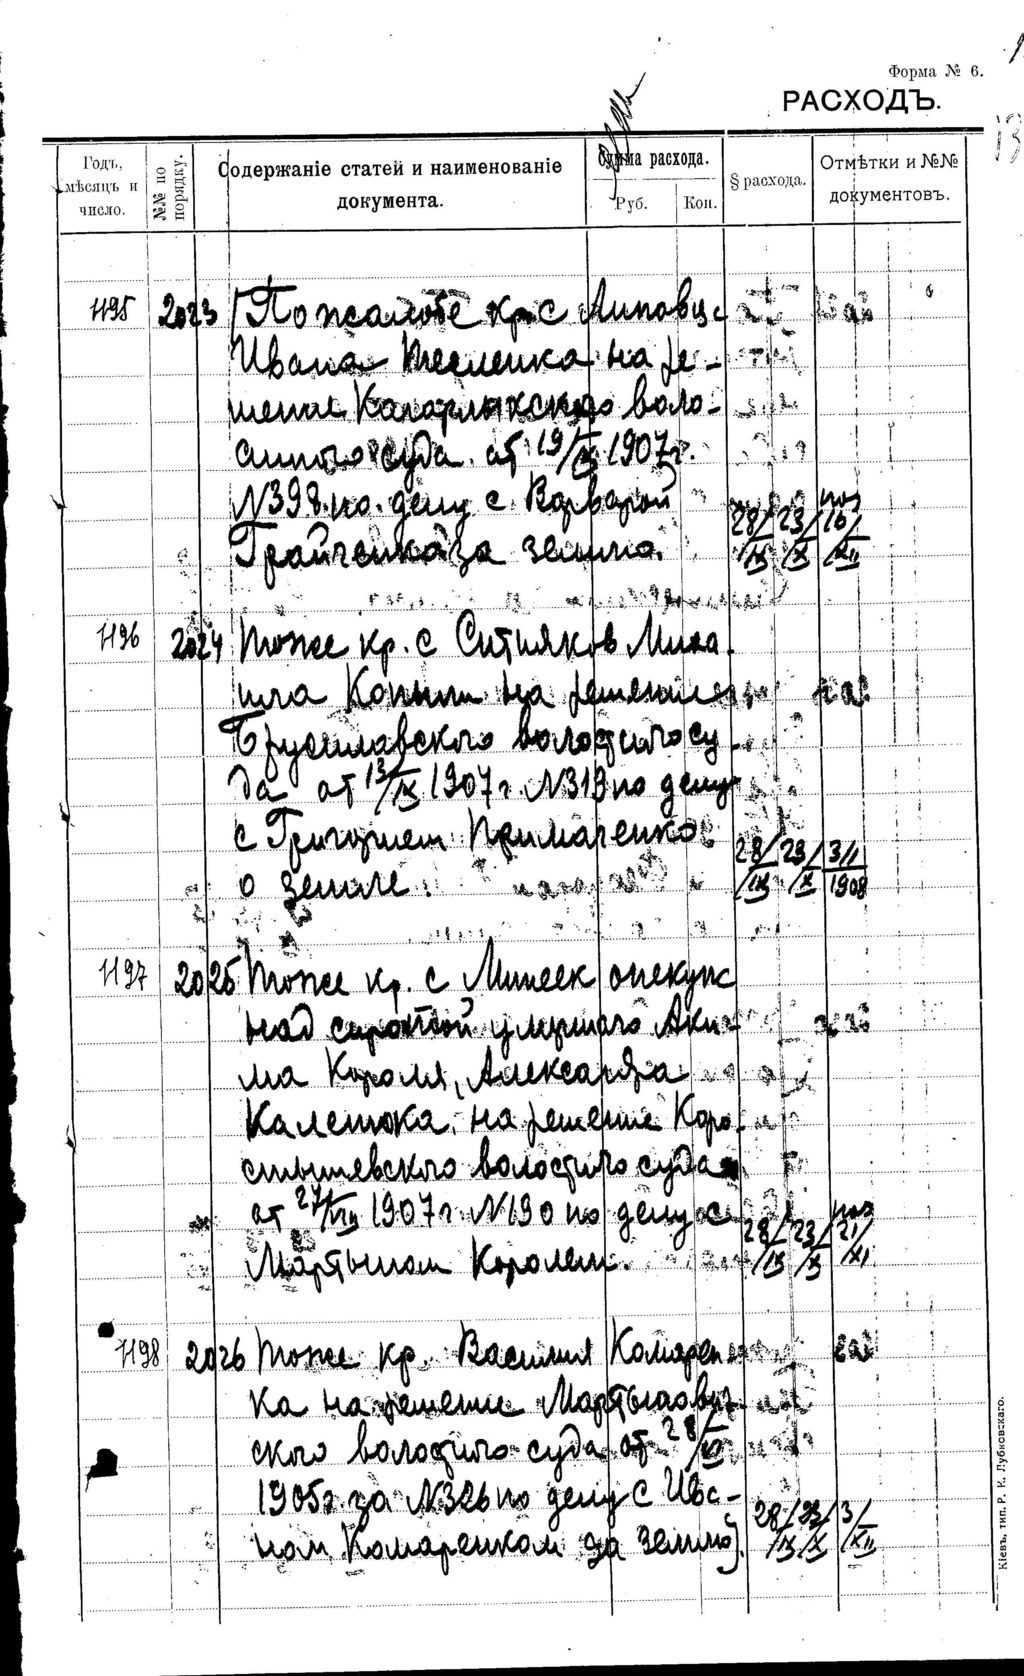 Форма № 6.
РАСХОДЪ.
Годъ, мѣсяцъ и число.
№№ по порядку.
Содержаніе статей и наименованіе документа.
Сумма расхода.
Руб.
Коп.
§ расхода.
Отмѣтки и №№ документовъ.
1195 2023 По жалобе кр. с Липовца
Ивана Тесленка на ре-
шение Кагарлыкского воло-
стного суда от 19/IX 1907 г.
N 398 по делу с Варварой
Грайченко за землю. 28/IX 23/X 16/XII
1196 2024 тоже кр. с Ситняков Миха
ила Копыт на решение
Брусилавского волостного су
да от 13/IX 1907 г. N 319 по делу
с Григорием Примаченко
о земле. 28/IX 23/X 3/I 1908
1197 2025 тоже кр. с Минеек опекуна
над сиротой умершого Аки-
ма Короля, Александра
Калетюка, на решение Коро
стышевского волостного суда
от 27/VIII 1907 г. N 190 по делу с
Мартыном Королем. 28/IX 23/X 21/XI
1198 2026 тоже кр. Василия Комарен
ка на решение Мартынович
ского волостного суда от 28/
1905 г за N 326 по делу с Ива-
ном Комаренком за землю. 28/IX 23/X 3/XII
Кіевъ, тип. Р. К. Лубковскаго.